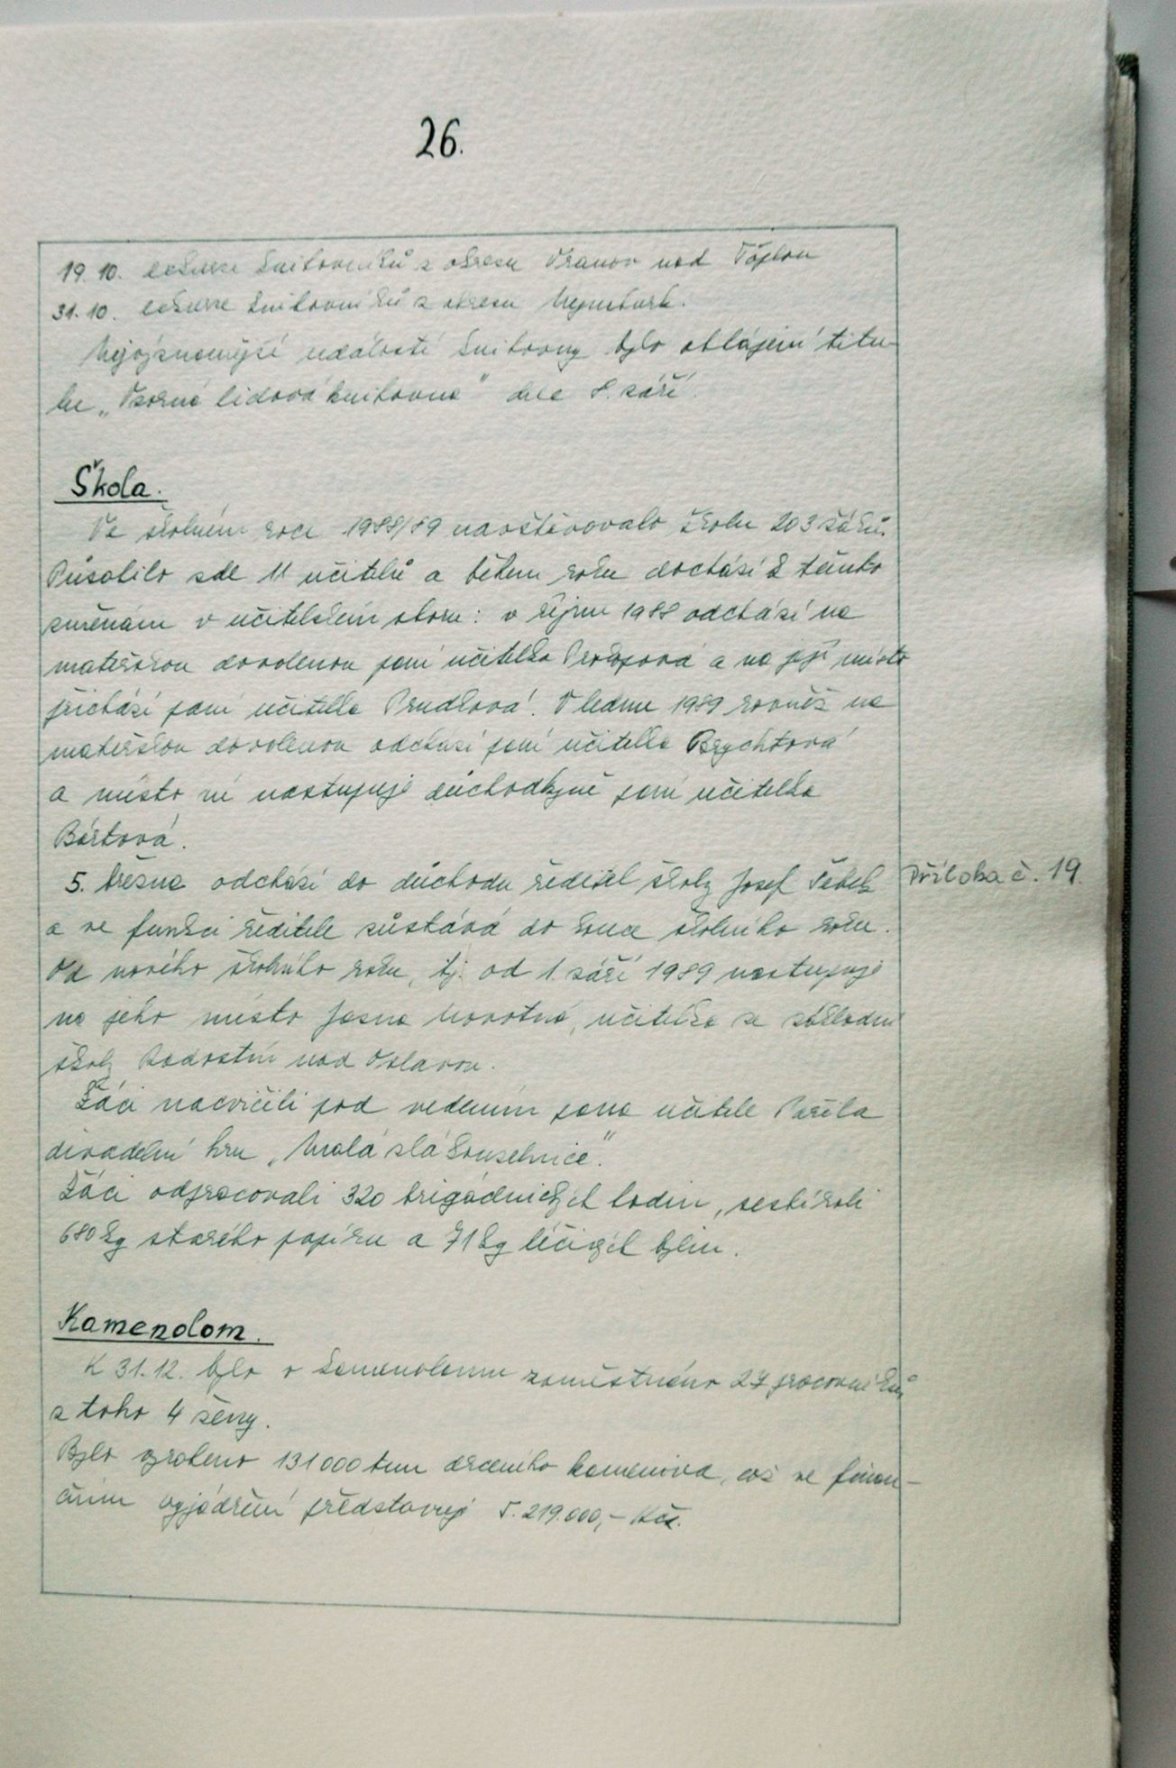 26.
19.10. exkurze knihovníků z okresu Vranov nad Töplou
31.10. exkurze knihovníků z okresu Nymburk.
Nejvýznamnější událostí knihovny bylo obhájení titu-
lu „Vzorná lidová knihovna" dne 8. září.
Škola.
Ve školním roce 1988/89 navštěvovalo školu 203 žáků.
Působilo zde 11 učitelů a během roku dochází k těmto
změnám v učitelském sboru: v říjnu 1988 odchází na
mateřskou dovolenou paní učitelka a na její místo
přichází paní učitelka Prudlová. V lednu 1989 rovněž na
mateřskou dovolenou odchází paní učitelka Brychtová
a místo ní nastupuje důchodkyně paní učitelka
Bártová.
5. března odchází do důchodu ředitel školy Josef
Příloha č. 19.
a ve funkci ředitele zůstává do konce školního roku.
Od nového školního roku, tj. od 1. září 1989 nastupuje
na jeho místo Jasna Novotná, učitelka ze základní
školy Radostín nad Oslavou.
Žáci nacvičili pod vedením pana učitele Pařila
divadelní hru „Malá zlá kouzelnice".
Žáci odpracovali 320 brigádnických hodin, sesbírali
680 kg starého papíru a 71 kg léčivých bylin.
Kamenolom.
K 31.12. bylo v kamenolomu zaměstnáno 27 pracovníků
z toho 4 ženy.
Bylo vyrobeno 131000 tun drceného kameniva, což ve finan-
čním vyjádření představuje 5.219.000,- Kčs.